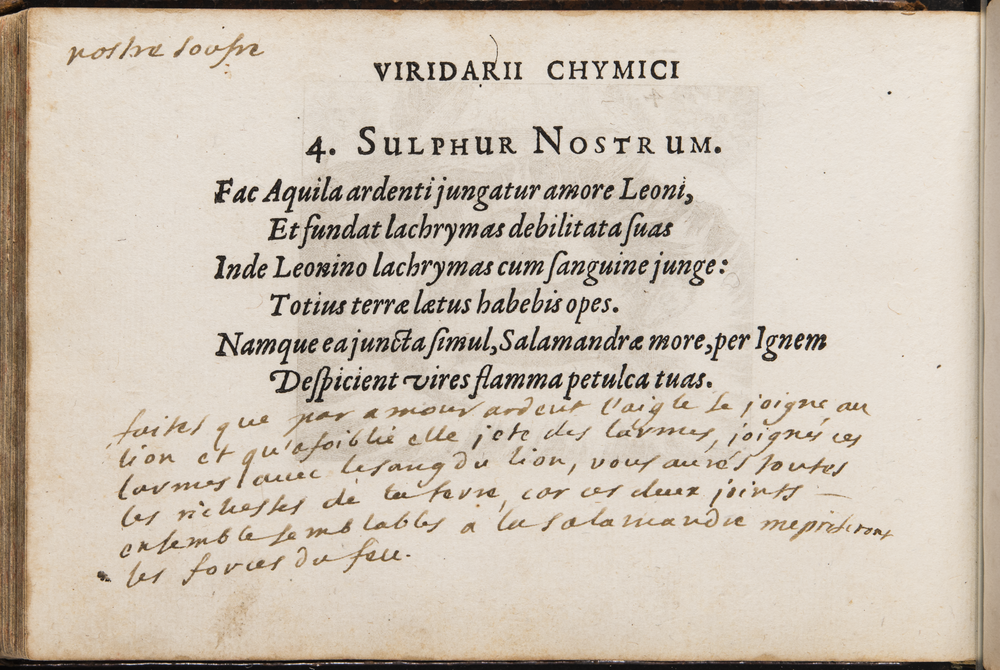 nostre soufre
VIRIDARII CHYMICI
4. SULPHUR NOSTRUM.
Fac Aquila ardenti jungatur amore Leoni,
Et fundat lachrymas debilitata suas
Inde Leonino lachrymas cum sanguine junge:
Totius terræ lætus habebis opes.
Namque ea juncta simul, Salamandræ more, per Ignem
Despicient vires flamma petulca tuas.
faites que par amour ardent l'aigle se joigne au
lion et qu'afoiblie elle jete des larmes, joignés ces
larmes avec le sang du lion, vous aurés toutes
les richesses de la terre, car ces deux joints
ensemble semblables a la salamandre mepriseront
les forces du feu.